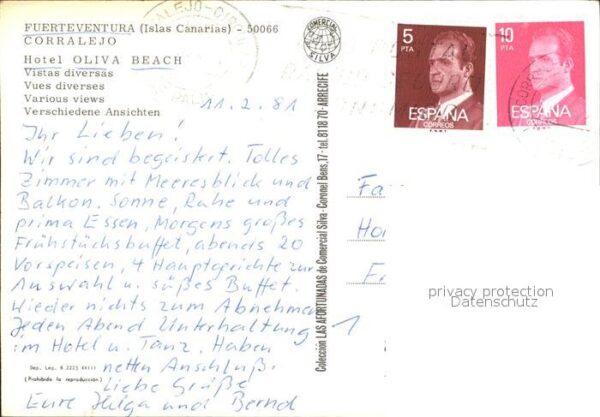 FUERTEVENTURA (Islas Canarias) - 50066
CORRALEJO
Hotel OLIVA BEACH
Vistas diversas
Vues diverses
Various views
Verschiedene Ansichten
11.2.81
Ihr Lieben!
Wir sind begeistert. Tolles
Zimmer mit Meeresblick und
Balkon. Sonne, Ruhe und
prima Essen, Morgens großes
Frühstücksbuffet, abends 20
Vorspeisen, 4 Hauptgerichte zur
Auswahl u. süßes Buffet.
Wieder nichts zum Abnehmen
Jeden Abend Unterhaltung
im Hotel u. Tanz. Haben
netten Anschluß.
Liebe Grüße
Eure Helga und Bernd
Dep. Leg. B 2223 XXIII
(Prohibida la reproducción)
COMERCIAL
SILVA
Colección LAS AFORTUNADAS de Comercial Silva - Coronel Bens, 17 - tel. 81 18 70 - ARRECIFE
5
PTA
ESPAÑA
CORREOS
10
PTA
ESPAÑA
CORREOS
Fa
Ha
1
privacy protection
Datenschutz